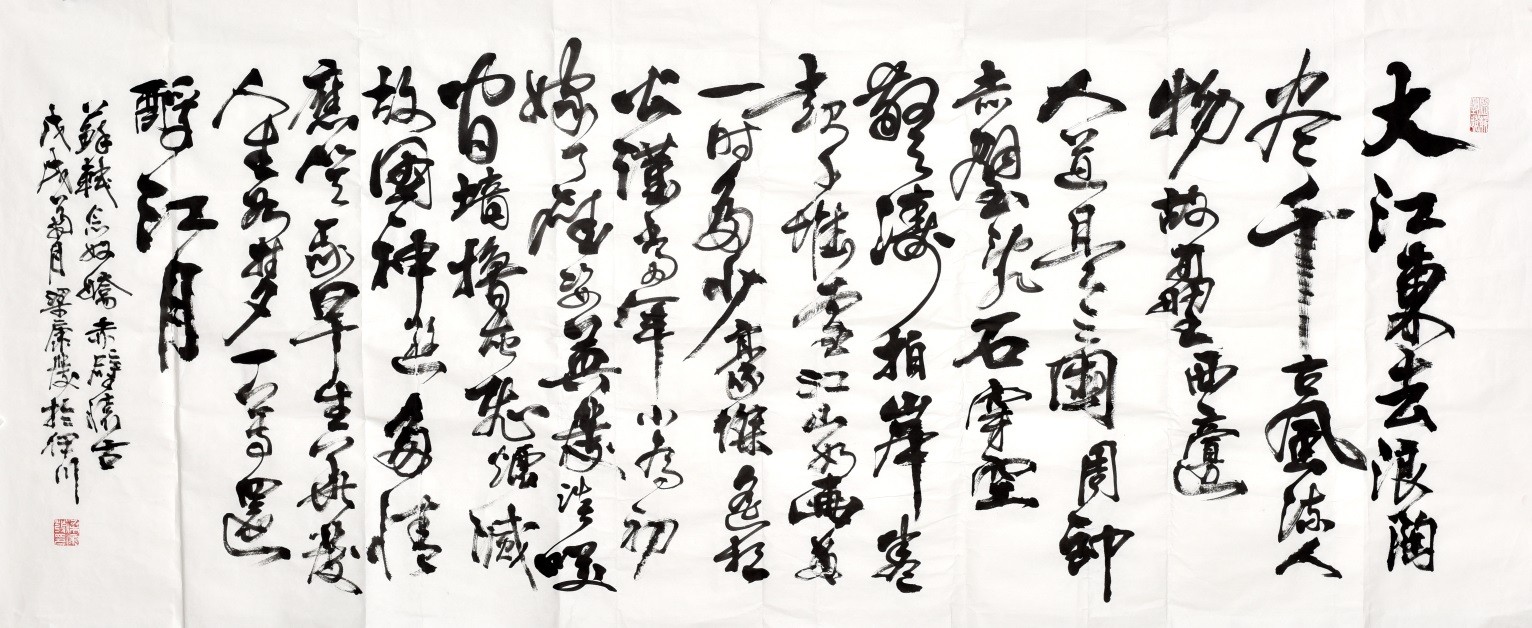 大江東去浪陶
尽千古風流人
物故壘西邊
人道是三國周郎
赤壁乱石穿空
驚濤拍岸卷
起千堆雪江山如画
一时多少豪傑遙想
公瑾當年小喬初
嫁了雄姿英發談笑
間墻櫓灰飛煙滅
故國神遊多情
應笑我早生華發
人生如梦一尊還
酹江月
蘇軾念奴嬌赤壁懷古
戊戌菊月梁康發於伊川